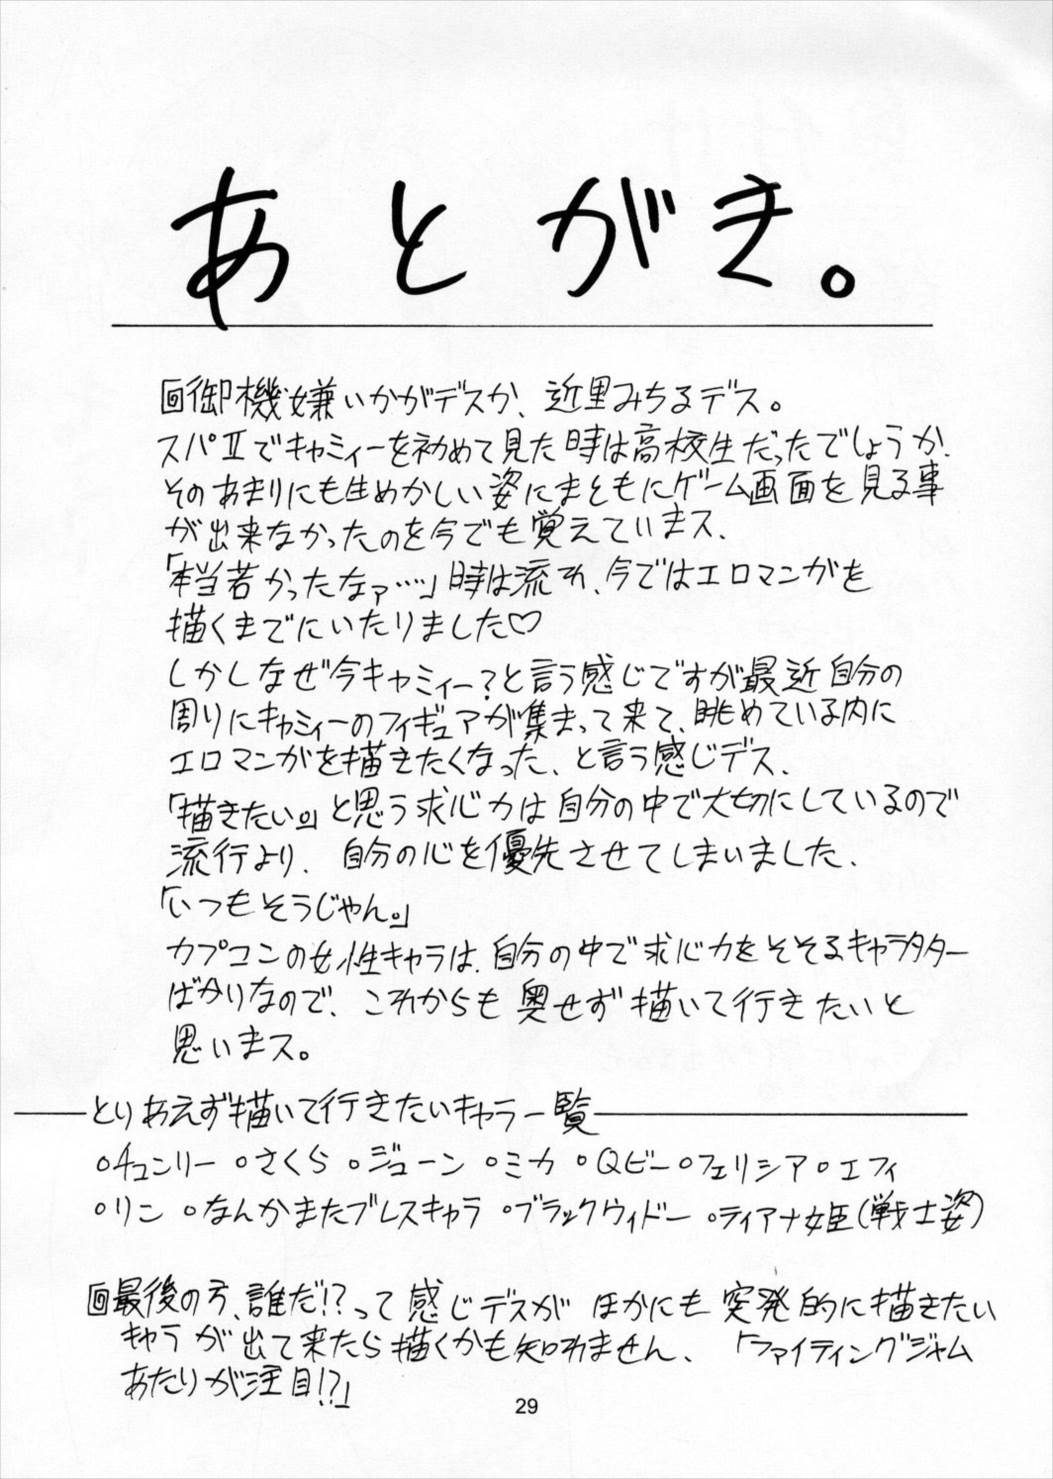 あとがき。
回御機嫌いかがデスか、近里みちるデス。
スパⅡでキャミィーを初めて見た時は高校生だったでしょうか、
そのあまりにも生めかしい姿にまともにゲーム画面を見る事
が出来なかったのを今でも覚えていまス、
「本当若かったなァ……」時は流れ、今ではエロマンガを
描くまでにいたりました♡
しかしなぜ今キャミィー?と言う感じですが最近自分の
周りにキャミィーのフィギュアが集まって来て、眺めている内に
エロマンガを描きたくなった、と言う感じデス、
「描きたい。」と思う求心力は自分の中で大切にしているので
流行より、自分の心を優先させてしまいました、
「いつもそうじゃん。」
カプコンの女性キャラは、自分の中で求心力をそそるキャラタター
ばかりなので、これからも奥せず描いて行きたいと
思いまス。
とりあえず描いて行きたいキャラ一覧
○チュンリー ○さくら ○ジューン ○ミカ ○Qビー ○フェリシア ○エフィ
○リン ○なんかまたブレスキャラ ○ブラックウィドー ○ティアナ姫(戦士姿)
回最後の方、誰だ!?って感じデスがほかにも突発的に描きたい
キャラが出て来たら描くかも知れません、「ファイティングジャム
あたりが注目!?」
29